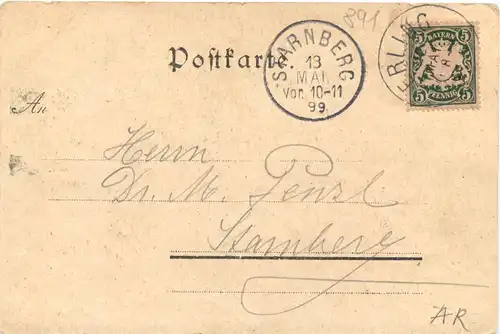 891
Postkarte.
STARNBERG
13
MAI.
Vor. 10-11
99.
ERLING
5 BAYERN 5
5 PFENNIG 5
An
Herrn
Dr. M. Penzl
Starnberg
AR